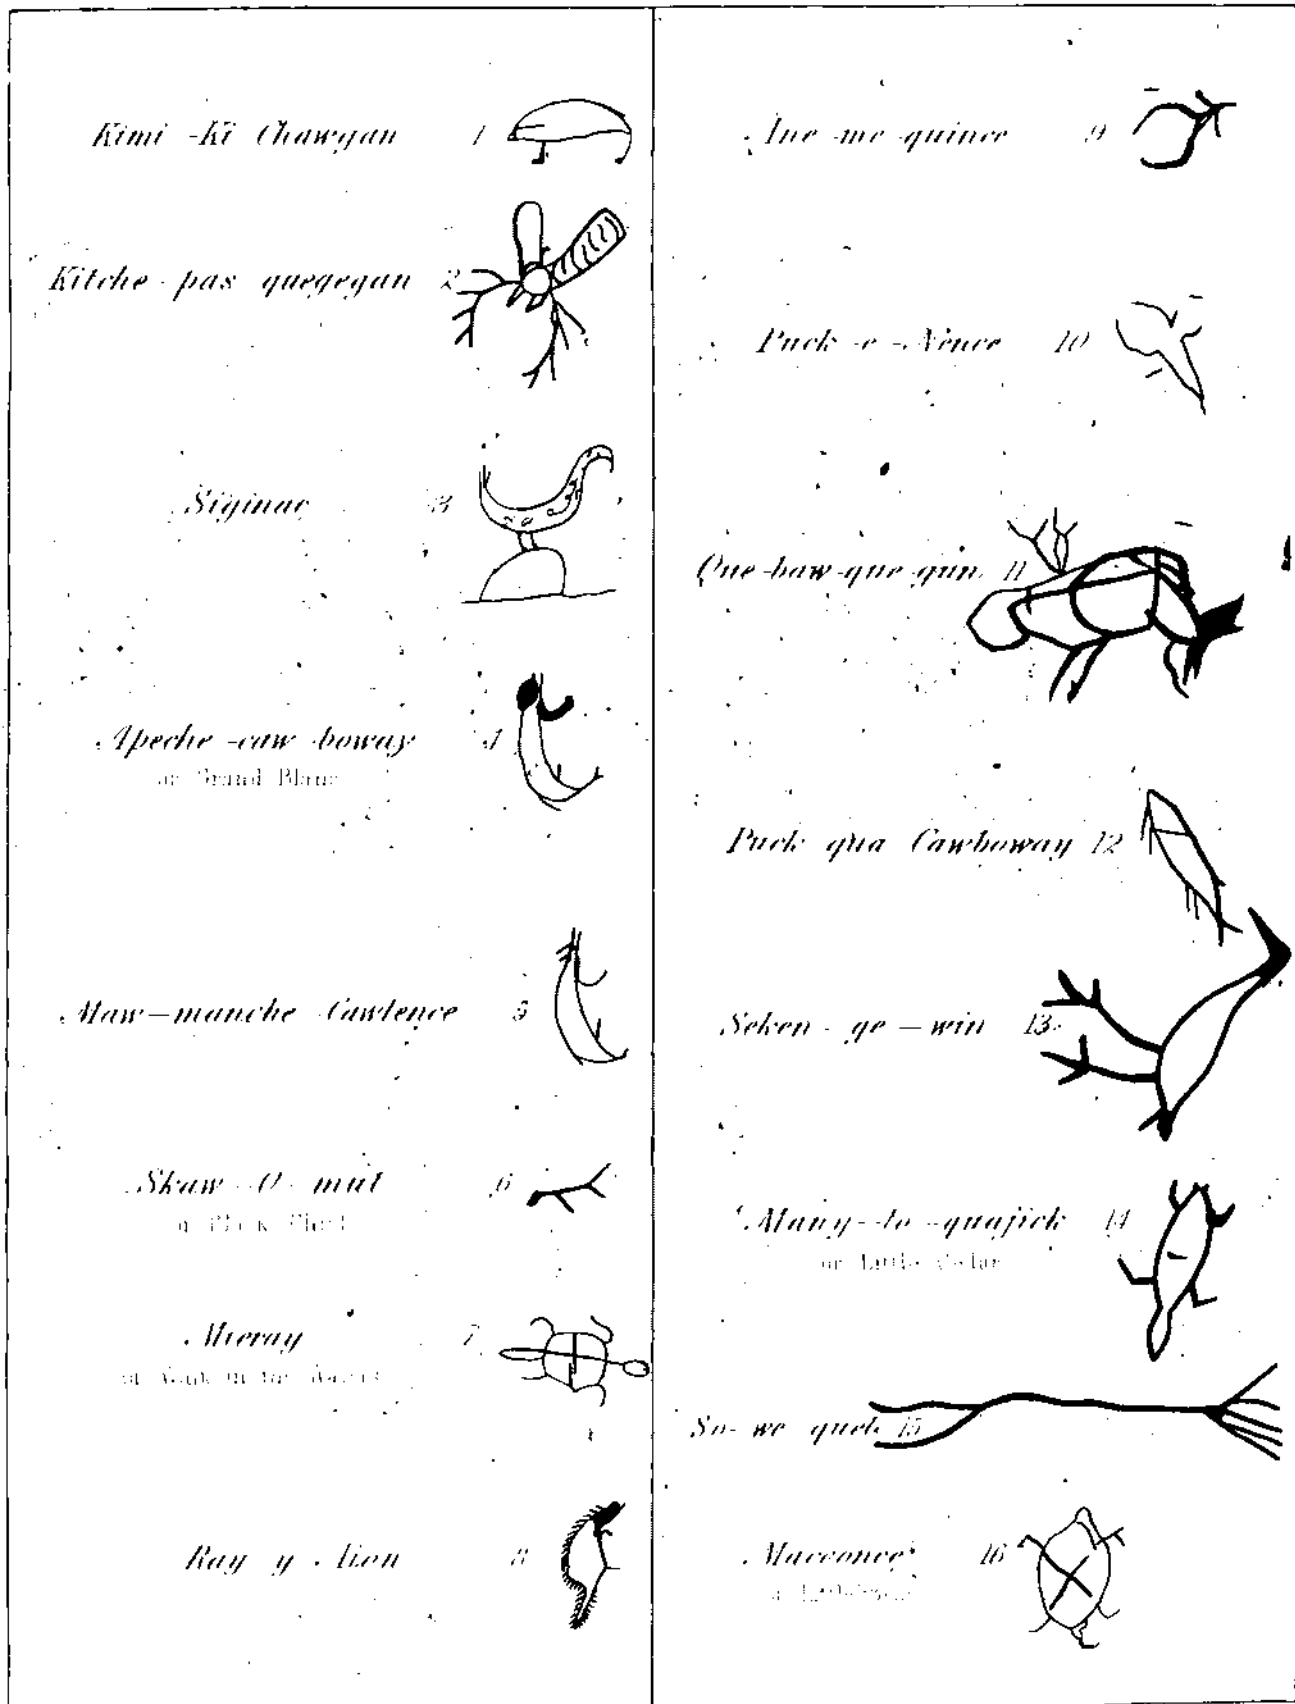 Kimi - Ki Chawgan 1
Kitche - pas quegegan 2
Siginac 3
Apeche - caw - boway 4
or Grand Blanc
Maw - manche Cawtence 5
Skaw - O - mut 6
or Black Chief
Mieray 7
or Walk in the Water
Ray y Jion 8
Ine - me - quince 9
Puck - e - Nence 10
Que - baw - que - gun 11
Puck qua Cawboway 12
Seken - ge - win 13
Many - to - quajick 14
or Little Cedar
So - we quet 15
Macconce 16
or